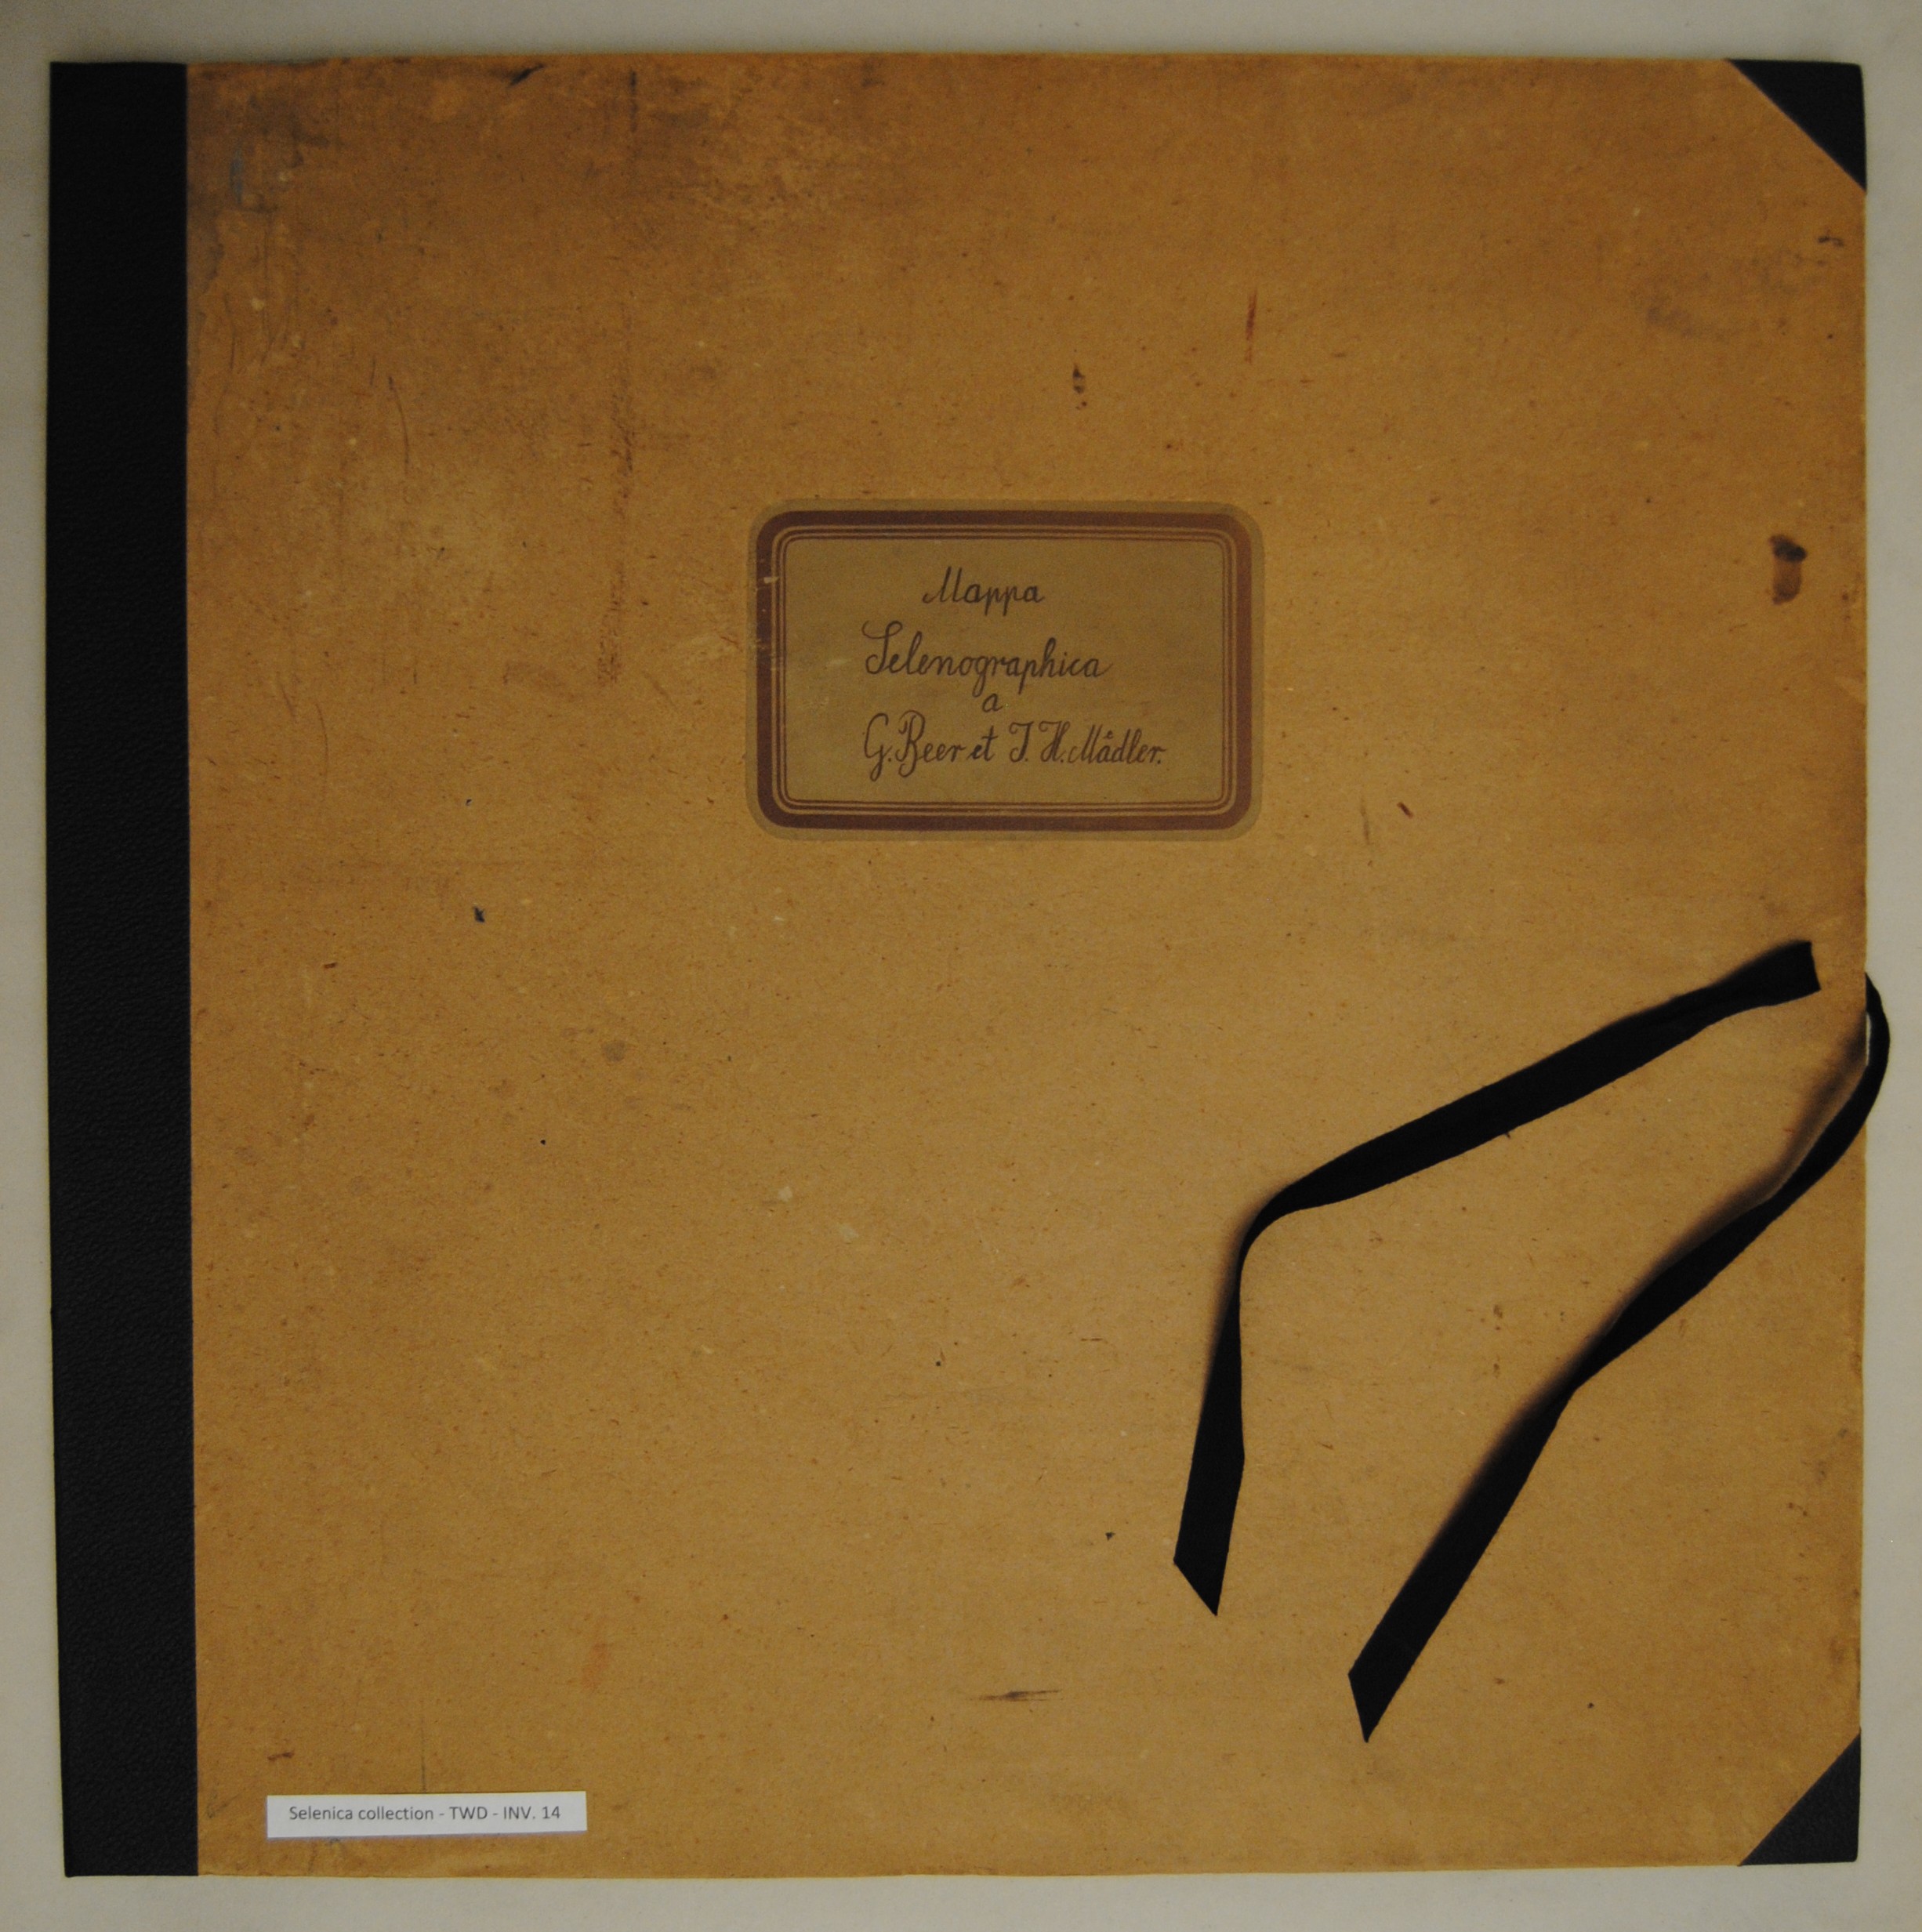 Mappa
Selenographica
a
G. Beer et J. H. Mådler.
Selenica collection - TWD - INV. 14